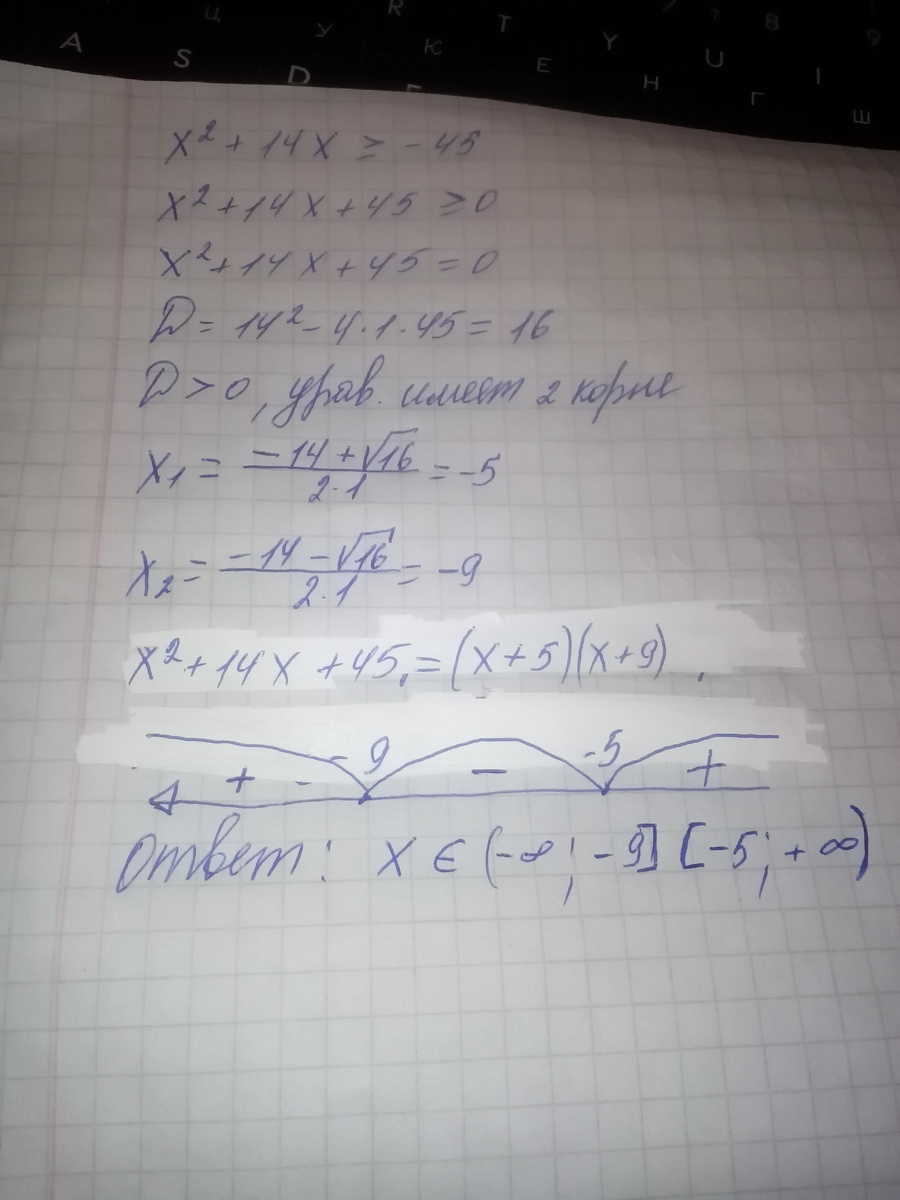 Ц R T Y ? B 9
A S У D К E Y H U Г I Ш
x² + 14x ≥ -45
x² + 14x + 45 ≥ 0
x² + 14x + 45 = 0
D = 14² - 4·1·45 = 16
D > 0, урав. имеет 2 корне
x₁ = (-14 + √16)/(2·1) = -5
x₂ = (-14 - √16)/(2·1) = -9
x² + 14x + 45 = (x+5)(x+9).
-9 -5
+ - - +
Ответ: x ∈ (-∞; -9] [-5; +∞)